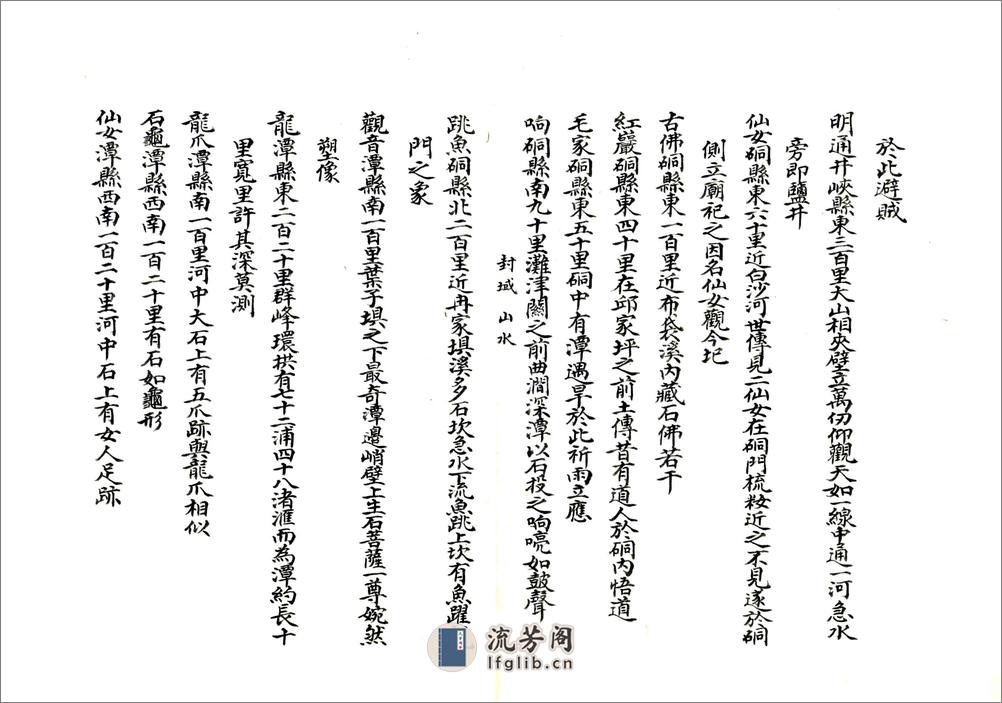 於此避賊
明通井峽縣東三百里大山相夾壁立萬仞仰觀天如一線中通一河急水
旁即鹽井
仙女硐縣東六十里近白沙河世傳見二仙女在硐門梳粧近之不見遂於硐
側立廟祀之因名仙女觀今圮
古佛硐縣東一百里近布袋溪內藏石佛若干
紅巖硐縣東四十里在邱家坪之前土傳昔有道人於硐內悟道
毛家硐縣東五十里硐中有潭遇旱於此祈雨立應
响硐縣南九十里灘津關之前曲澗深潭以石投之响喨如鼓聲
封域 山水
跳魚硐縣北二百里近冉家埧溪多石坎急水下流魚跳上坎有魚躍
門之象
觀音潭縣南一百里葉子埧之下最奇潭邊峭壁上生石菩薩一尊婉然
塑像
龍潭縣東二百二十里群峰環拱有七十二浦四十八渚滙而為潭約長十
里寬里許其深莫測
龍爪潭縣南一百里河中大石上有五爪跡與龍爪相似
石龜潭縣西南一百二十里有石如龜形
仙女潭縣西南一百二十里河中石上有女人足跡
流芳阁
lfglib.cn